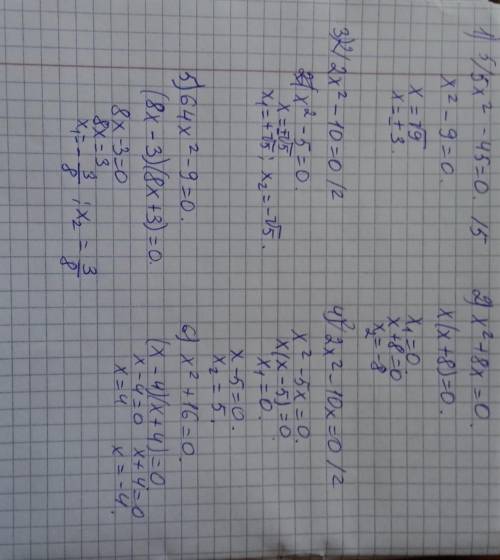 1) 5x² - 45 = 0. /5
x² - 9 = 0.
x = √9
x = ±3.
2) x² + 8x = 0.
x(x+8) = 0.
x₁ = 0.
x+8 = 0
x₂ = -8
3) 2x² - 10 = 0 /2
x² - 5 = 0.
x = ±√5
x₁ = +√5; x₂ = -√5.
4) 2x² - 10x = 0 /2
x² - 5x = 0.
x(x-5) = 0
x₁ = 0.
x-5 = 0.
x₂ = 5.
5) 64x² - 9 = 0.
(8x-3)(8x+3) = 0.
8x-3 = 0
8x = 3
x₁ = -3/8; x₂ = 3/8
6) x² + 16 = 0.
(x-4)(x+4) = 0
x-4 = 0 x+4 = 0
x = 4 x = -4.